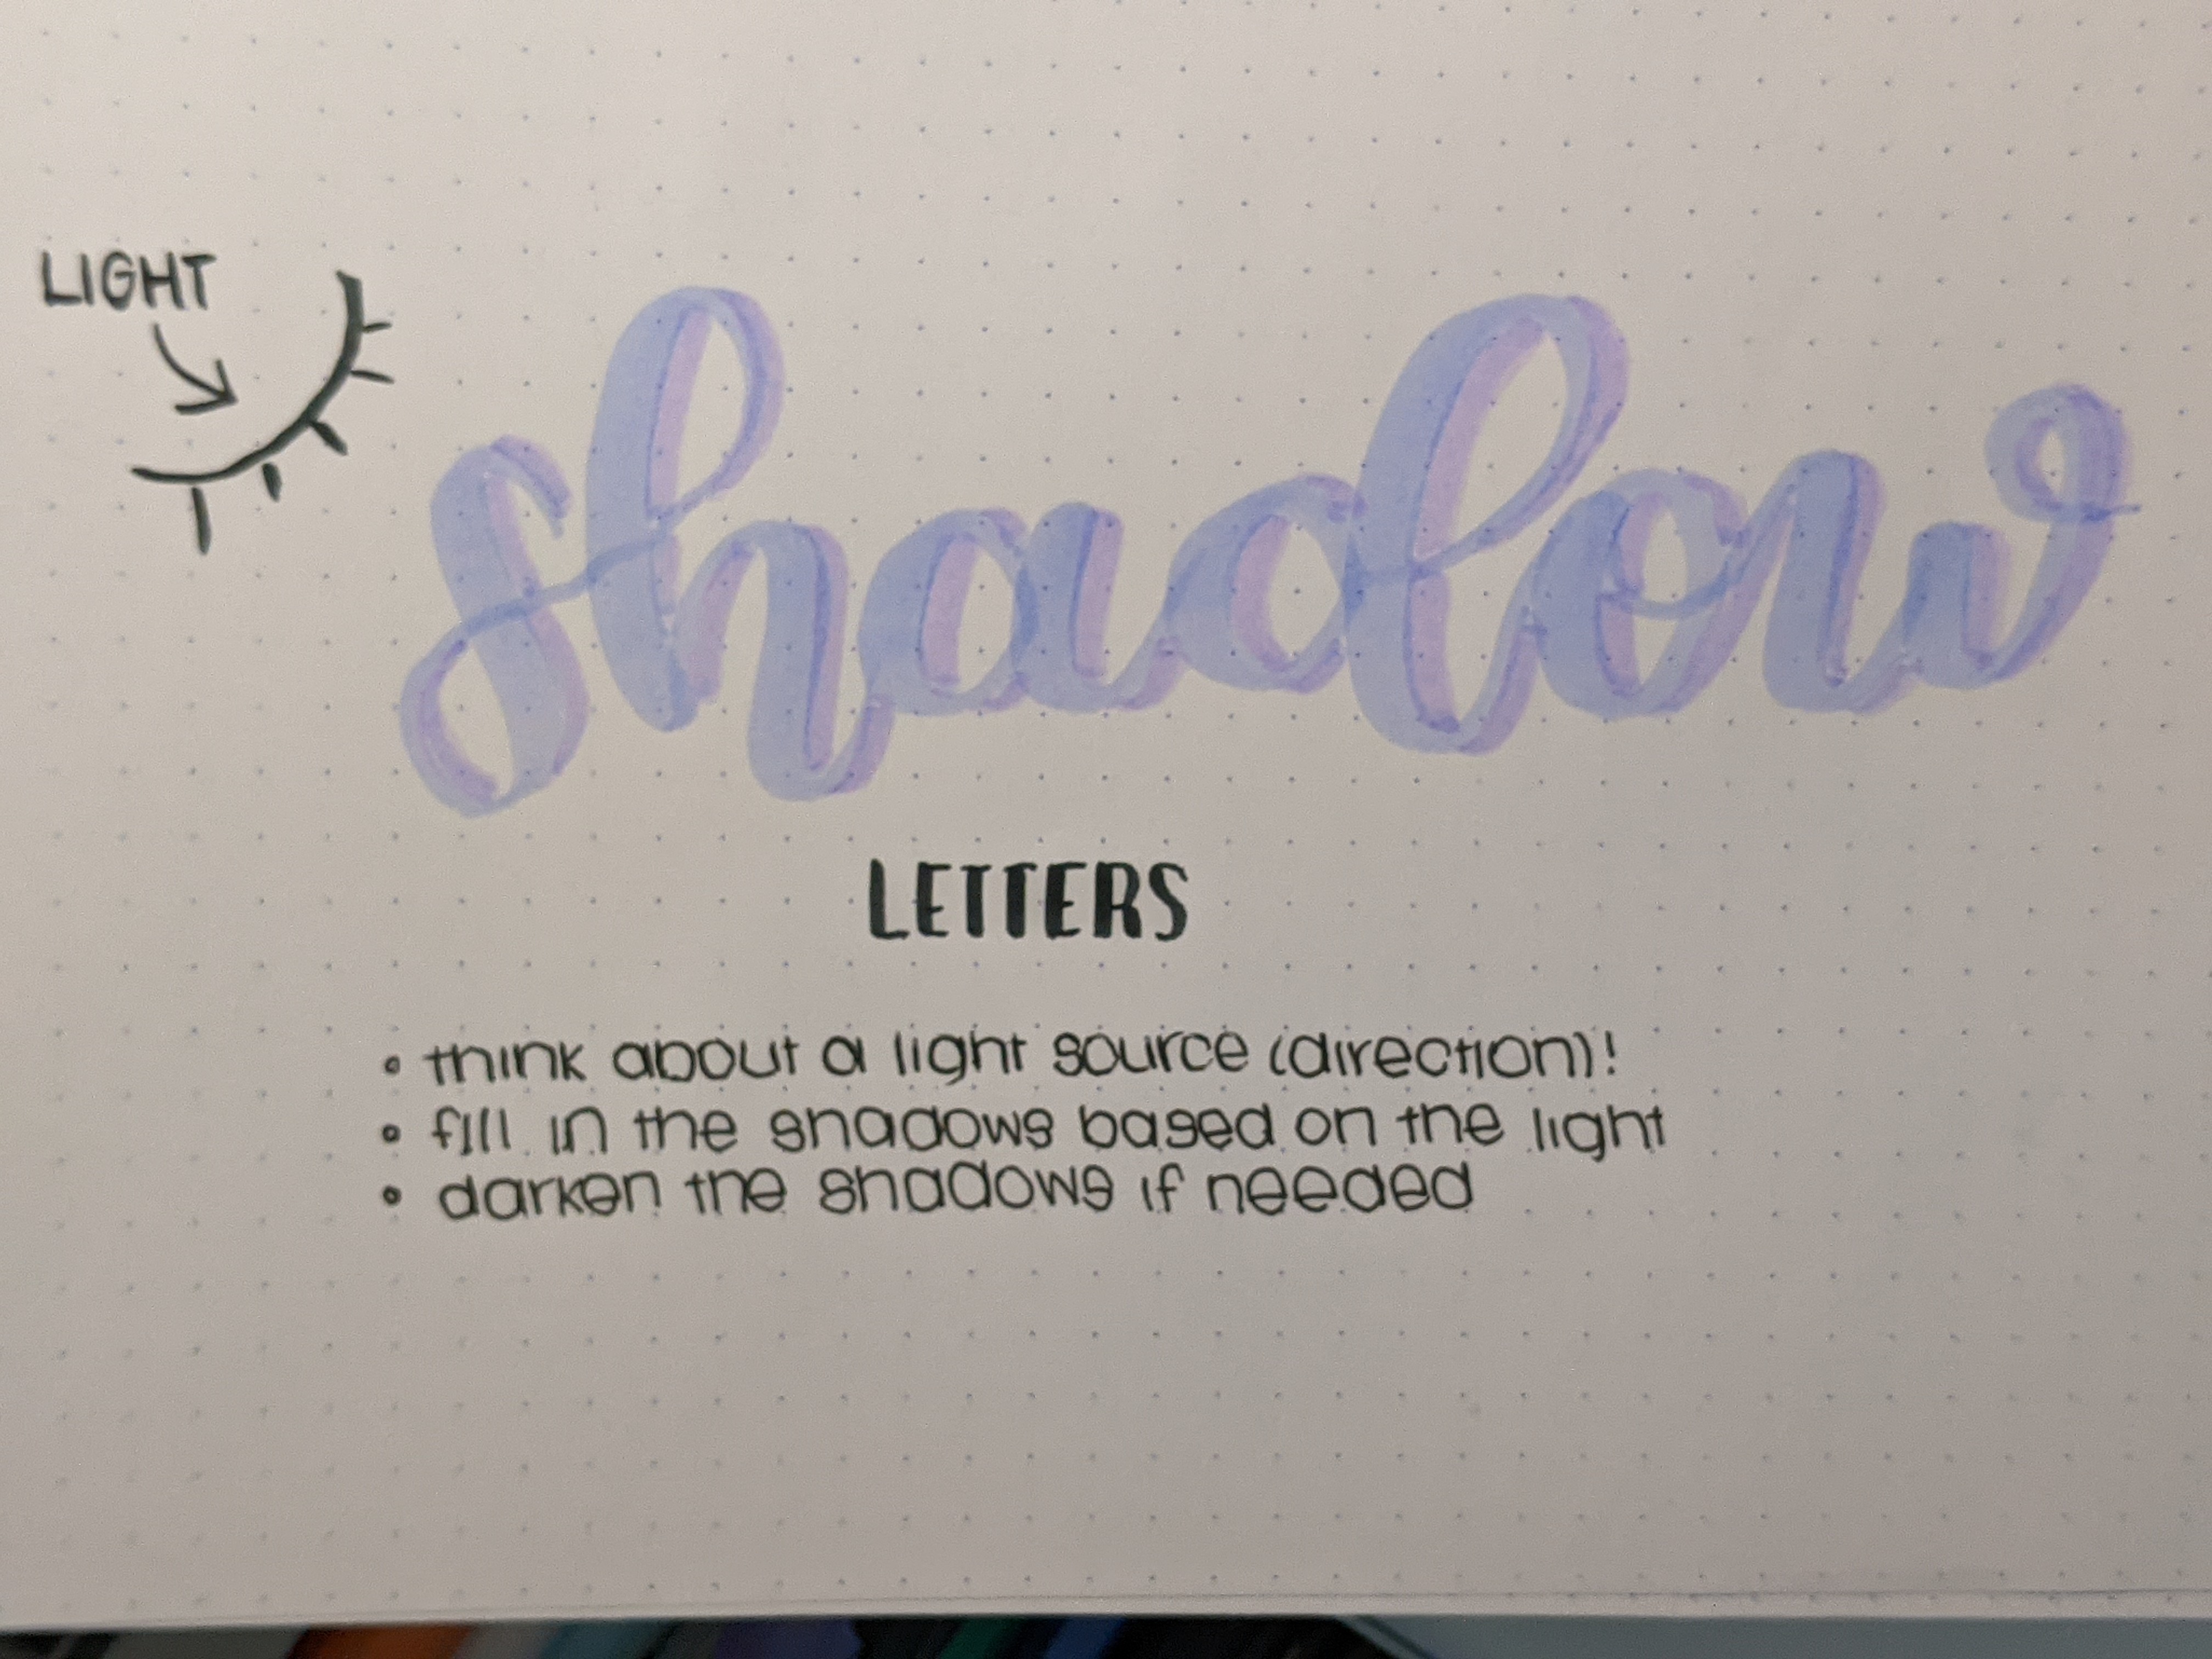 LIGHT
shadow
LETTERS
• think about a light source (direction)!
• fill in the shadows based on the light
• darken the shadows if needed